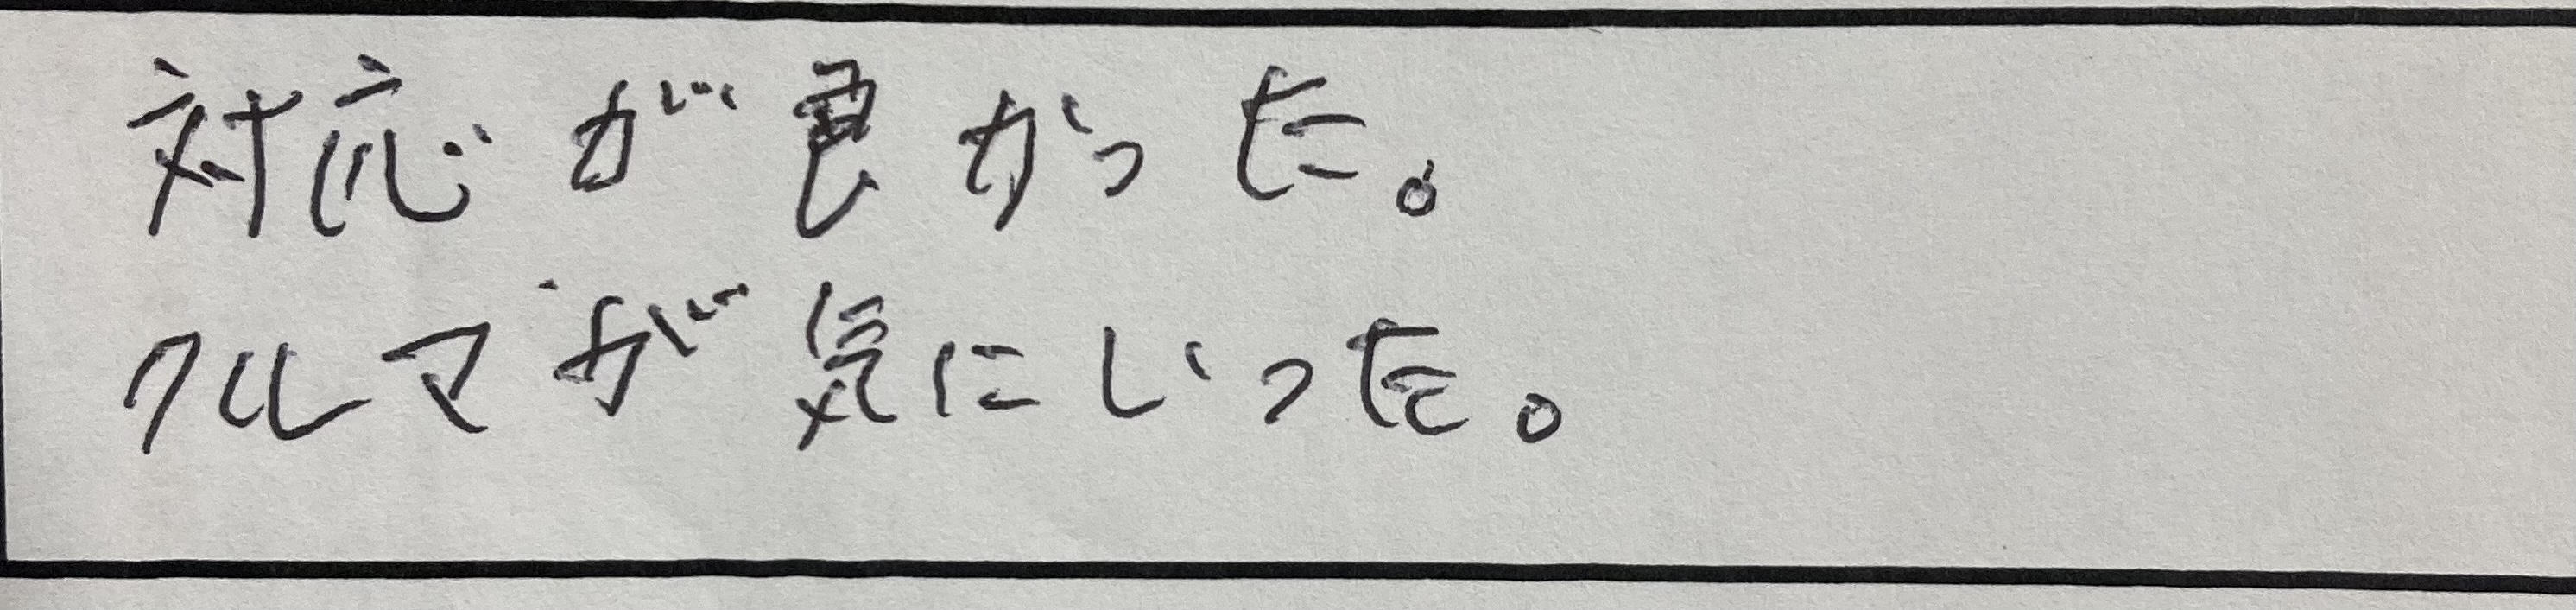 対応が良かった。
クルマが気にいった。